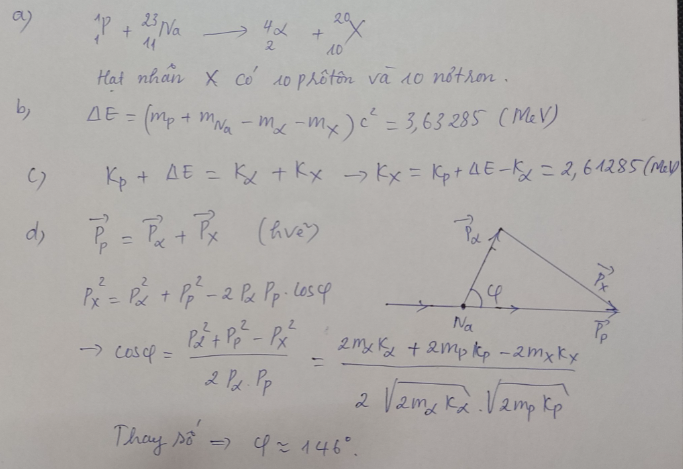 a) ¹₁P + ²³₁₁Na → ⁴₂α + ²⁰₁₀X
Hạt nhân X có 10 prôtôn và 10 nơtron.
b) ΔE = (m_p + m_Na - m_α - m_X) c² = 3,63285 (MeV)
c) K_p + ΔE = K_α + K_X → K_X = K_p + ΔE - K_α = 2,61285 (MeV)
d) P⃗_p = P⃗_α + P⃗_X (hvẽ)
P_X² = P_α² + P_p² - 2 P_α P_p . cosφ
→ cosφ = (P_α² + P_p² - P_X²) / (2 P_α . P_p) = (2m_α K_α + 2m_p K_p - 2m_X K_X) / (2 √(2m_α K_α) . √(2m_p K_p))
P⃗_α
φ
P⃗_X
Na
P⃗_p
Thay số ⇒ φ ≈ 146°.